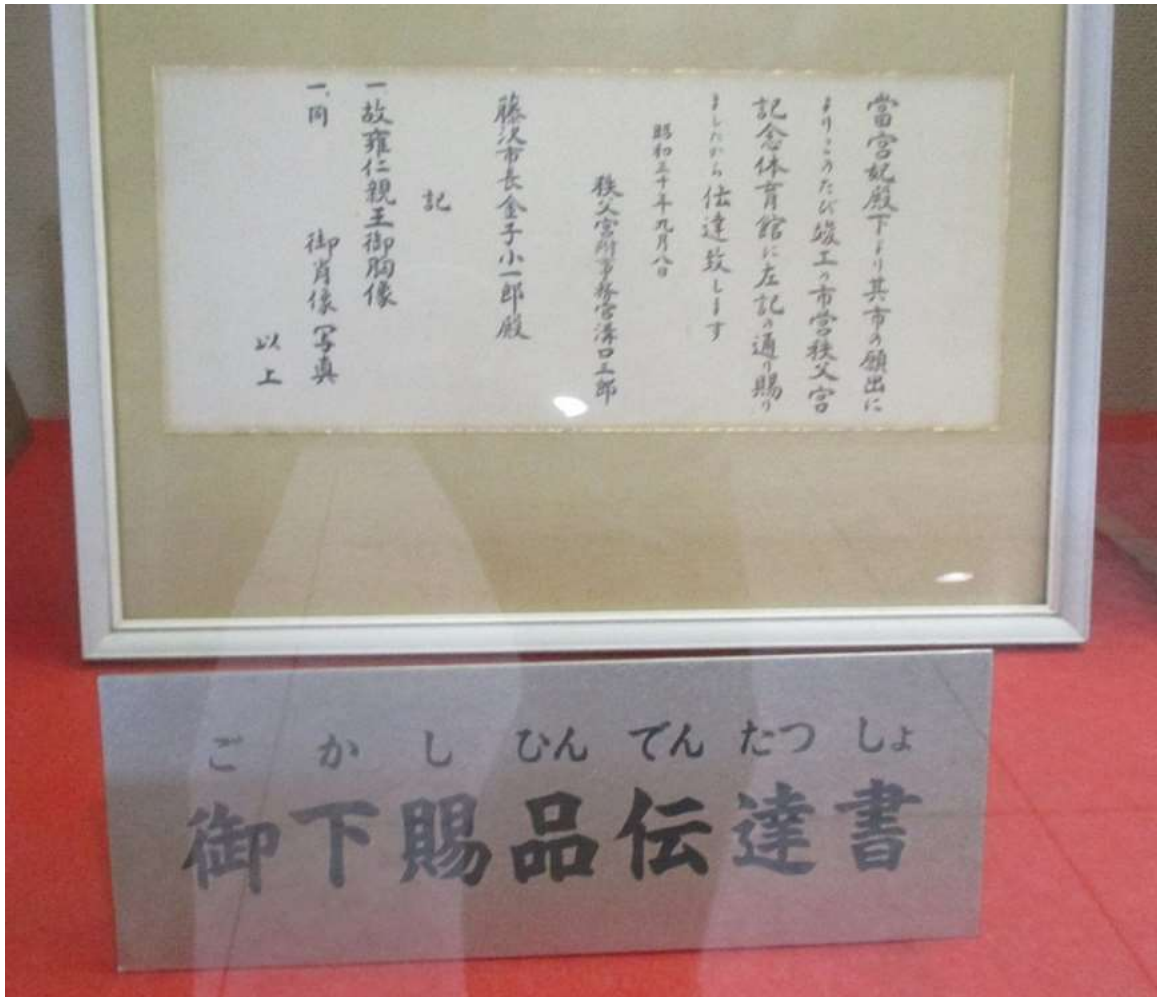 當宮妃殿下より其市の願出に
よりこのたび竣工の市営秩父宮
記念体育館に左記の通り賜り
ましたから伝達致します
昭和三十年九月八日
秩父宮附事務官溝口三郎
藤沢市長金子小一郎殿
記
一故雍仁親王御胸像
一、同 御肖像写真
以上
ごかしひんでんたつしょ
御下賜品伝達書